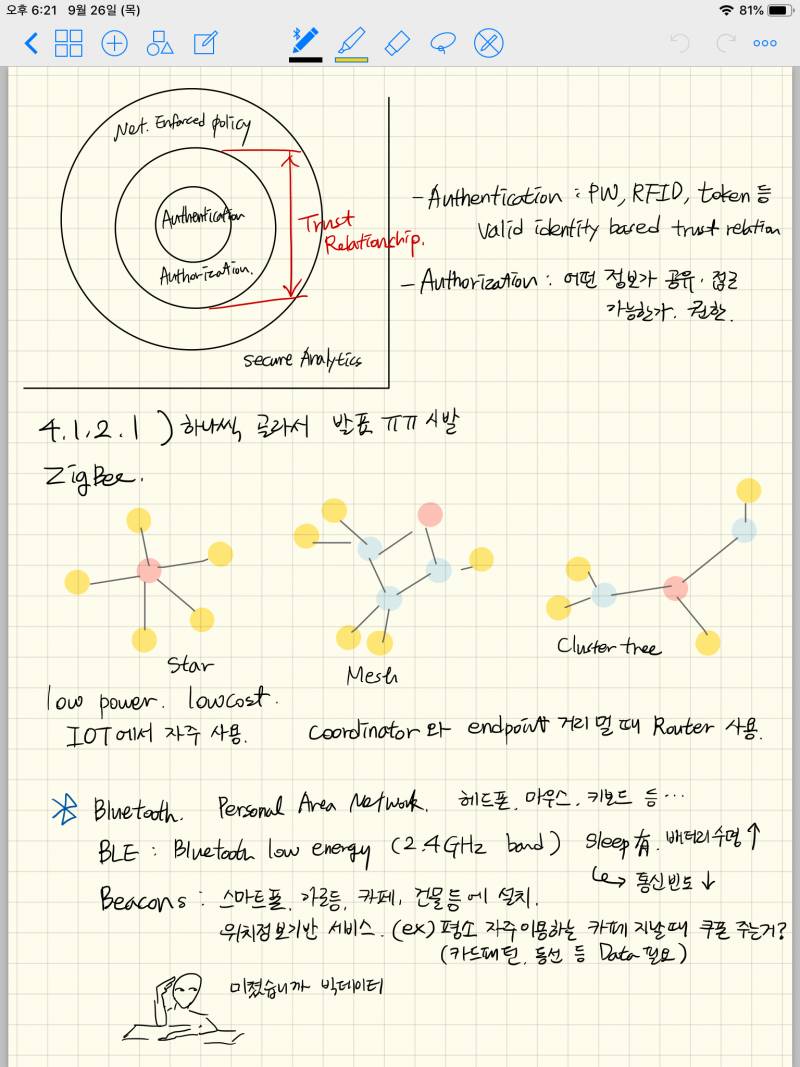 오후 6:21 9월 26일 (목)
81%
Net. Enforced policy
Authentication
Authorization.
Trust
Relationship.
secure Analytics
- Authentication : PW, RFID, token 등
Valid identity based trust relation
- Authorization : 어떤 정보가 공유·접근
가능한가. 권한.
4.1.2.1 ) 하나씩 골라서 발표 ㅠㅠ 시발
ZigBee.
Star
Mesh
Cluster tree
low power. low cost.
IOT에서 자주 사용.
Coordinator와 endpoint 거리 멀 때 Router 사용.
Bluetooth. Personal Area Network. 헤드폰, 마우스, 키보드 등…
BLE : Bluetooth low energy (2.4GHz band) Sleep 有. 배터리수명 ↑
↳ 통신빈도 ↓
Beacons : 스마트폴, 가로등, 카페, 건물등에 설치.
위치정보기반 서비스. (ex) 평소 자주이용하는 카페 지날때 쿠폰 주는거?
(카드패턴, 동선 등 Data 필요)
미쳤습니까 빅데이터